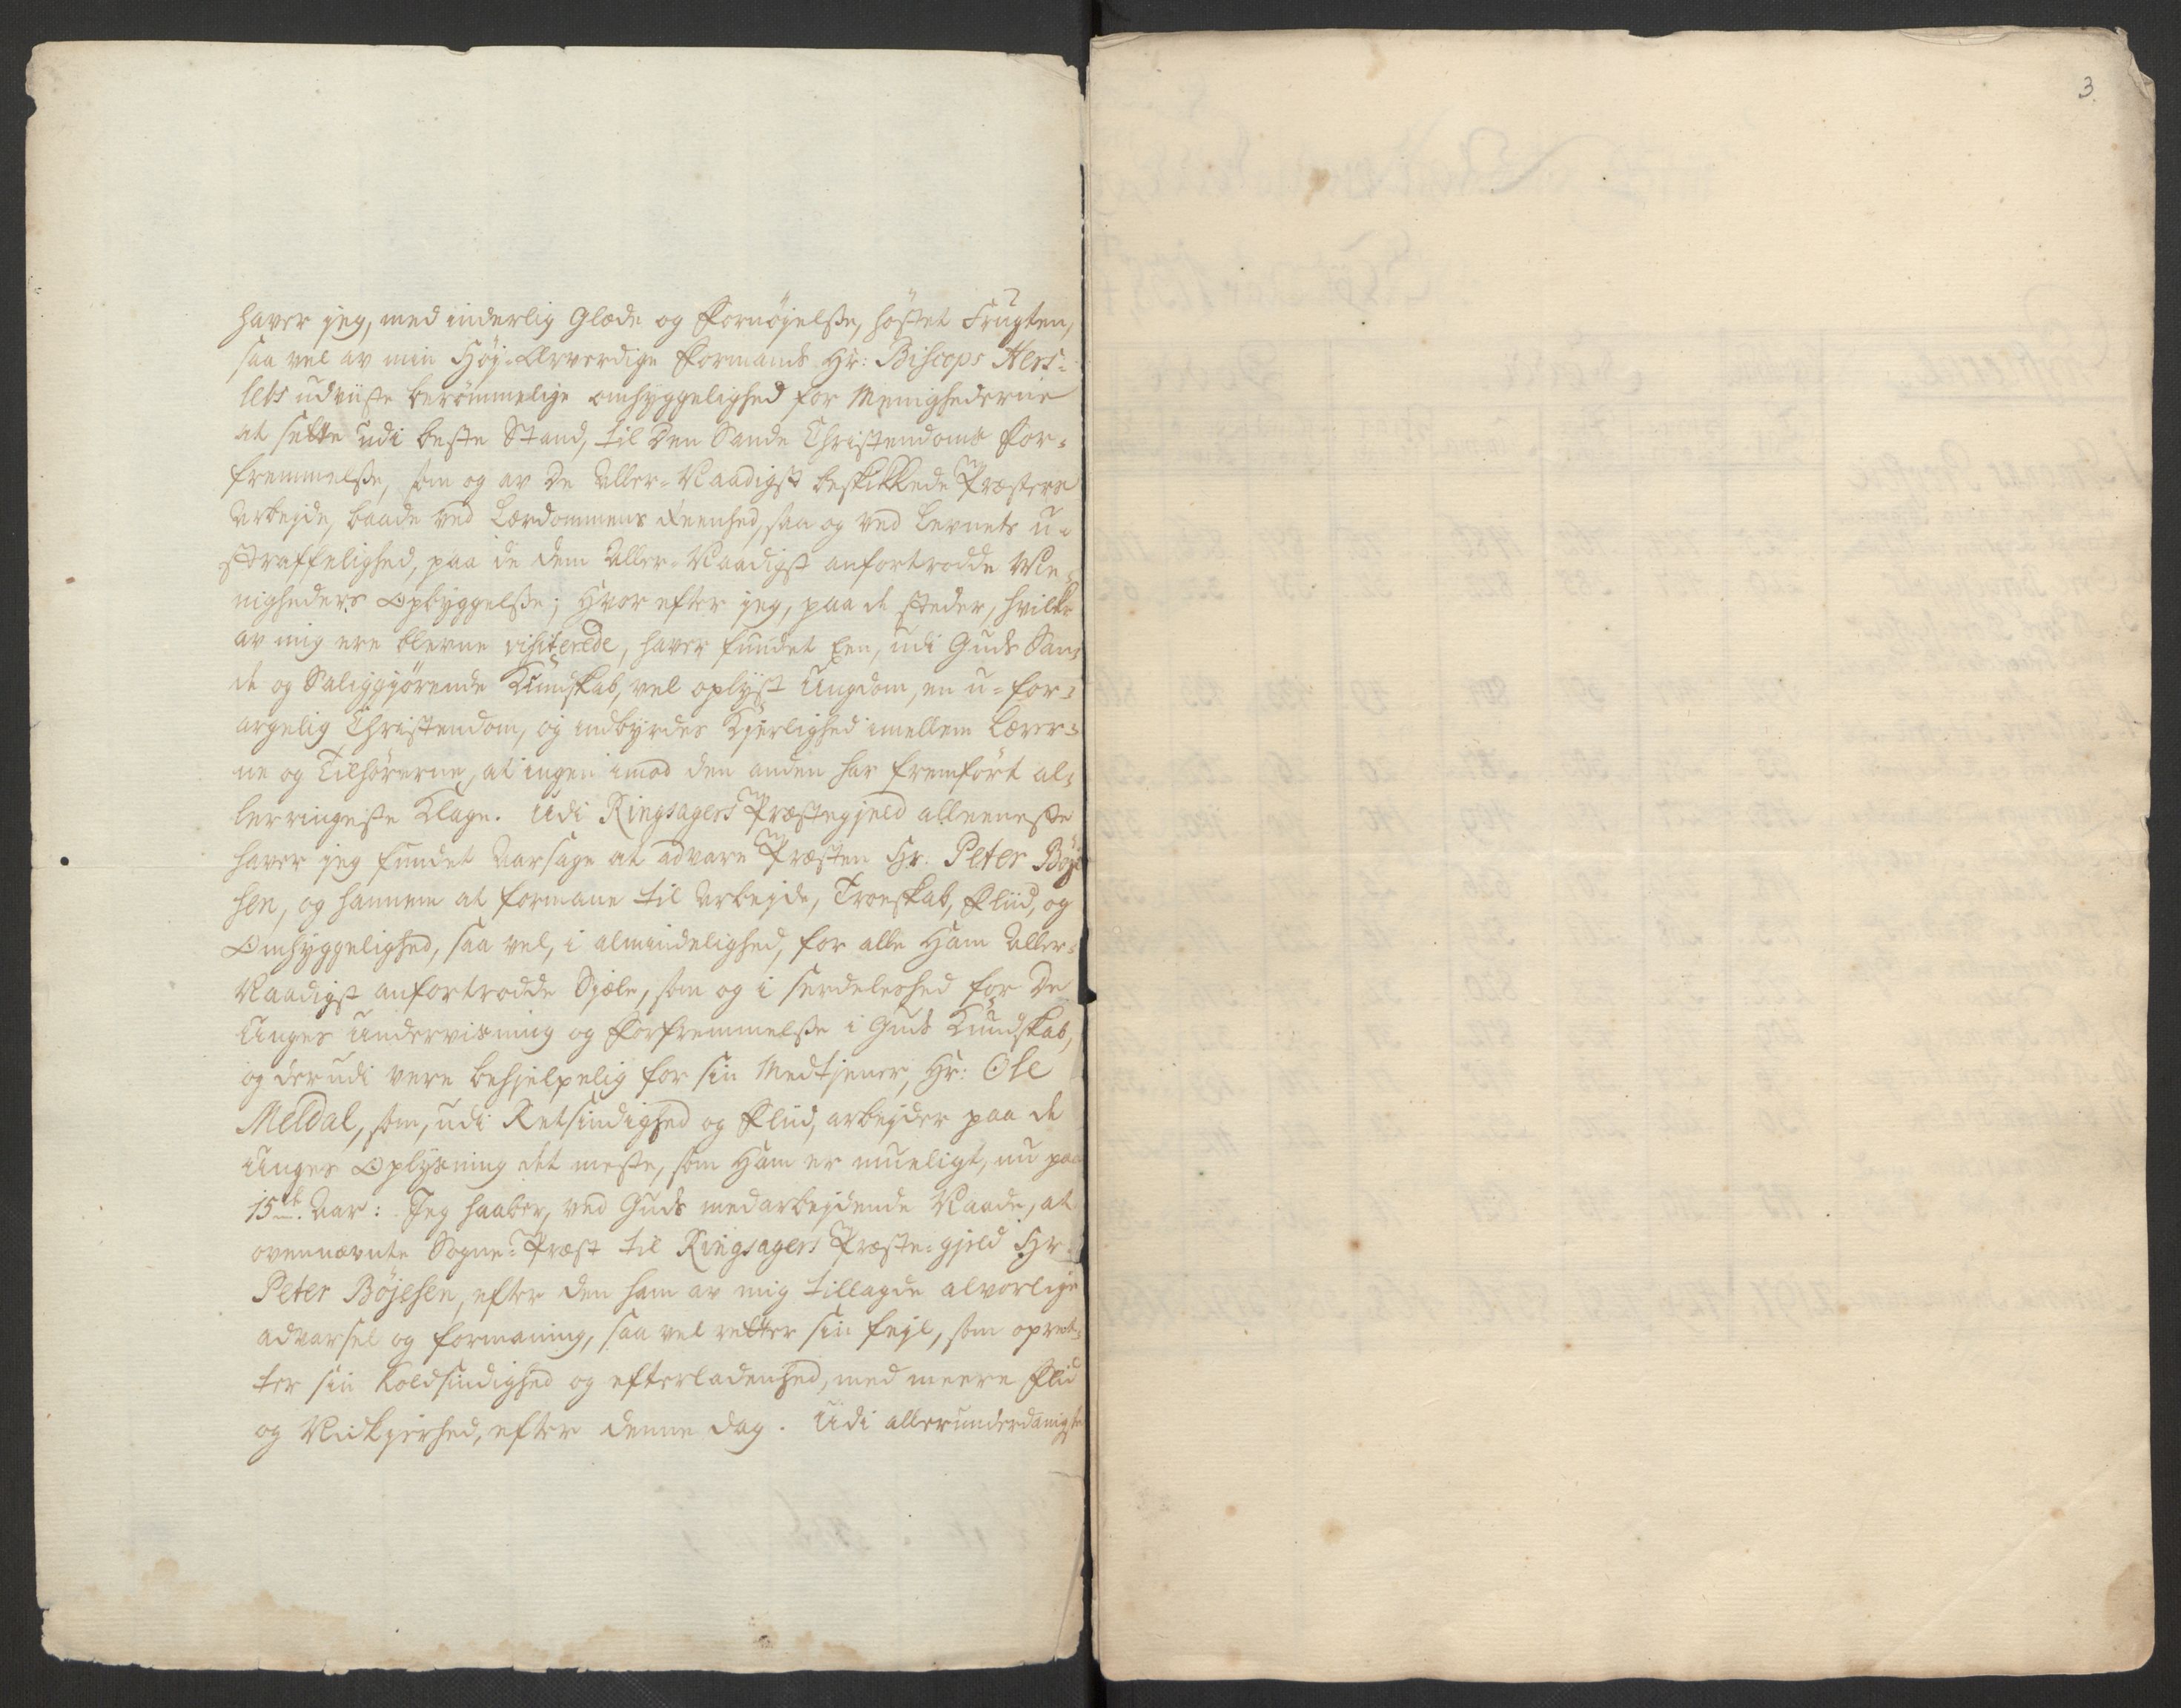 haver jeg, med inderlig Glæde og Fornöjelsse, höstet Frugten,
saa vel av min Höj-Ærverdige Formands Hr: Biscops Hers-
lebs udviiste berömmelige omhyggelighed for Menighederne
at sette udi beste Stand, til Den Sande Christendoms For-
fremmelsse, som og av De Aller-Naadigst beskikkede Præsters
Arbejde, baade ved Lærdommens Reenhed, saa og ved Levnets u-
straffelighed, paa de dem Aller-Naadigst anfortrodde Me-
nigheders Opbyggelsse; Hvor efter jeg, paa de steder, hvilke
av mig ere blevne visiterede, haver fundet Een, udi Guds San-
de og Saliggjörende Kundskab, vel oplyst Ungdom, en u-for-
argelig Christendom, og indbyrdes Kjerlighed imellem Lærer-
ne og Tilhörerne, at ingen imod den anden har fremfört al-
lerringeste Klage. Udi Ringsagers Præstegjeld alleeneste
haver jeg fundet Aarsage at advare Præsten Hr. Peter Böje-
sen, og hannem at formane til Arbejde, Troeskab, Fliid, og
Omhyggelighed, saa vel, i almindelighed, for alle Ham Aller-
Naadigst anfortrodde Sjæle, som og i serdeleshed for De
Unges Undervisning og Forfremmelsse i Guds Kundskab,
og derudi vere behjelpelig for sin Medtjener, Hr: Ole
Meldal, som, udi Retsindighed og Fliid, arbejder paa de
Unges Oplysning det meste, som Ham er mueligt, nu paa
15de Aar: Jeg haaber, ved Guds medarbejdende Naade, at
ovennævnte Sogne-Præst til Ringsagers Præste-gjeld Hr.
Peter Böjesen, efter den ham av mig tillagde alvorlige
advarsel og formaning, saa vel retter sin fejl, som opret-
ter sin Koldsindighed og efterladenhed, med meere Fliid
og Nidkjerhed, efter denne dag. Udi allerunderdanigste
3